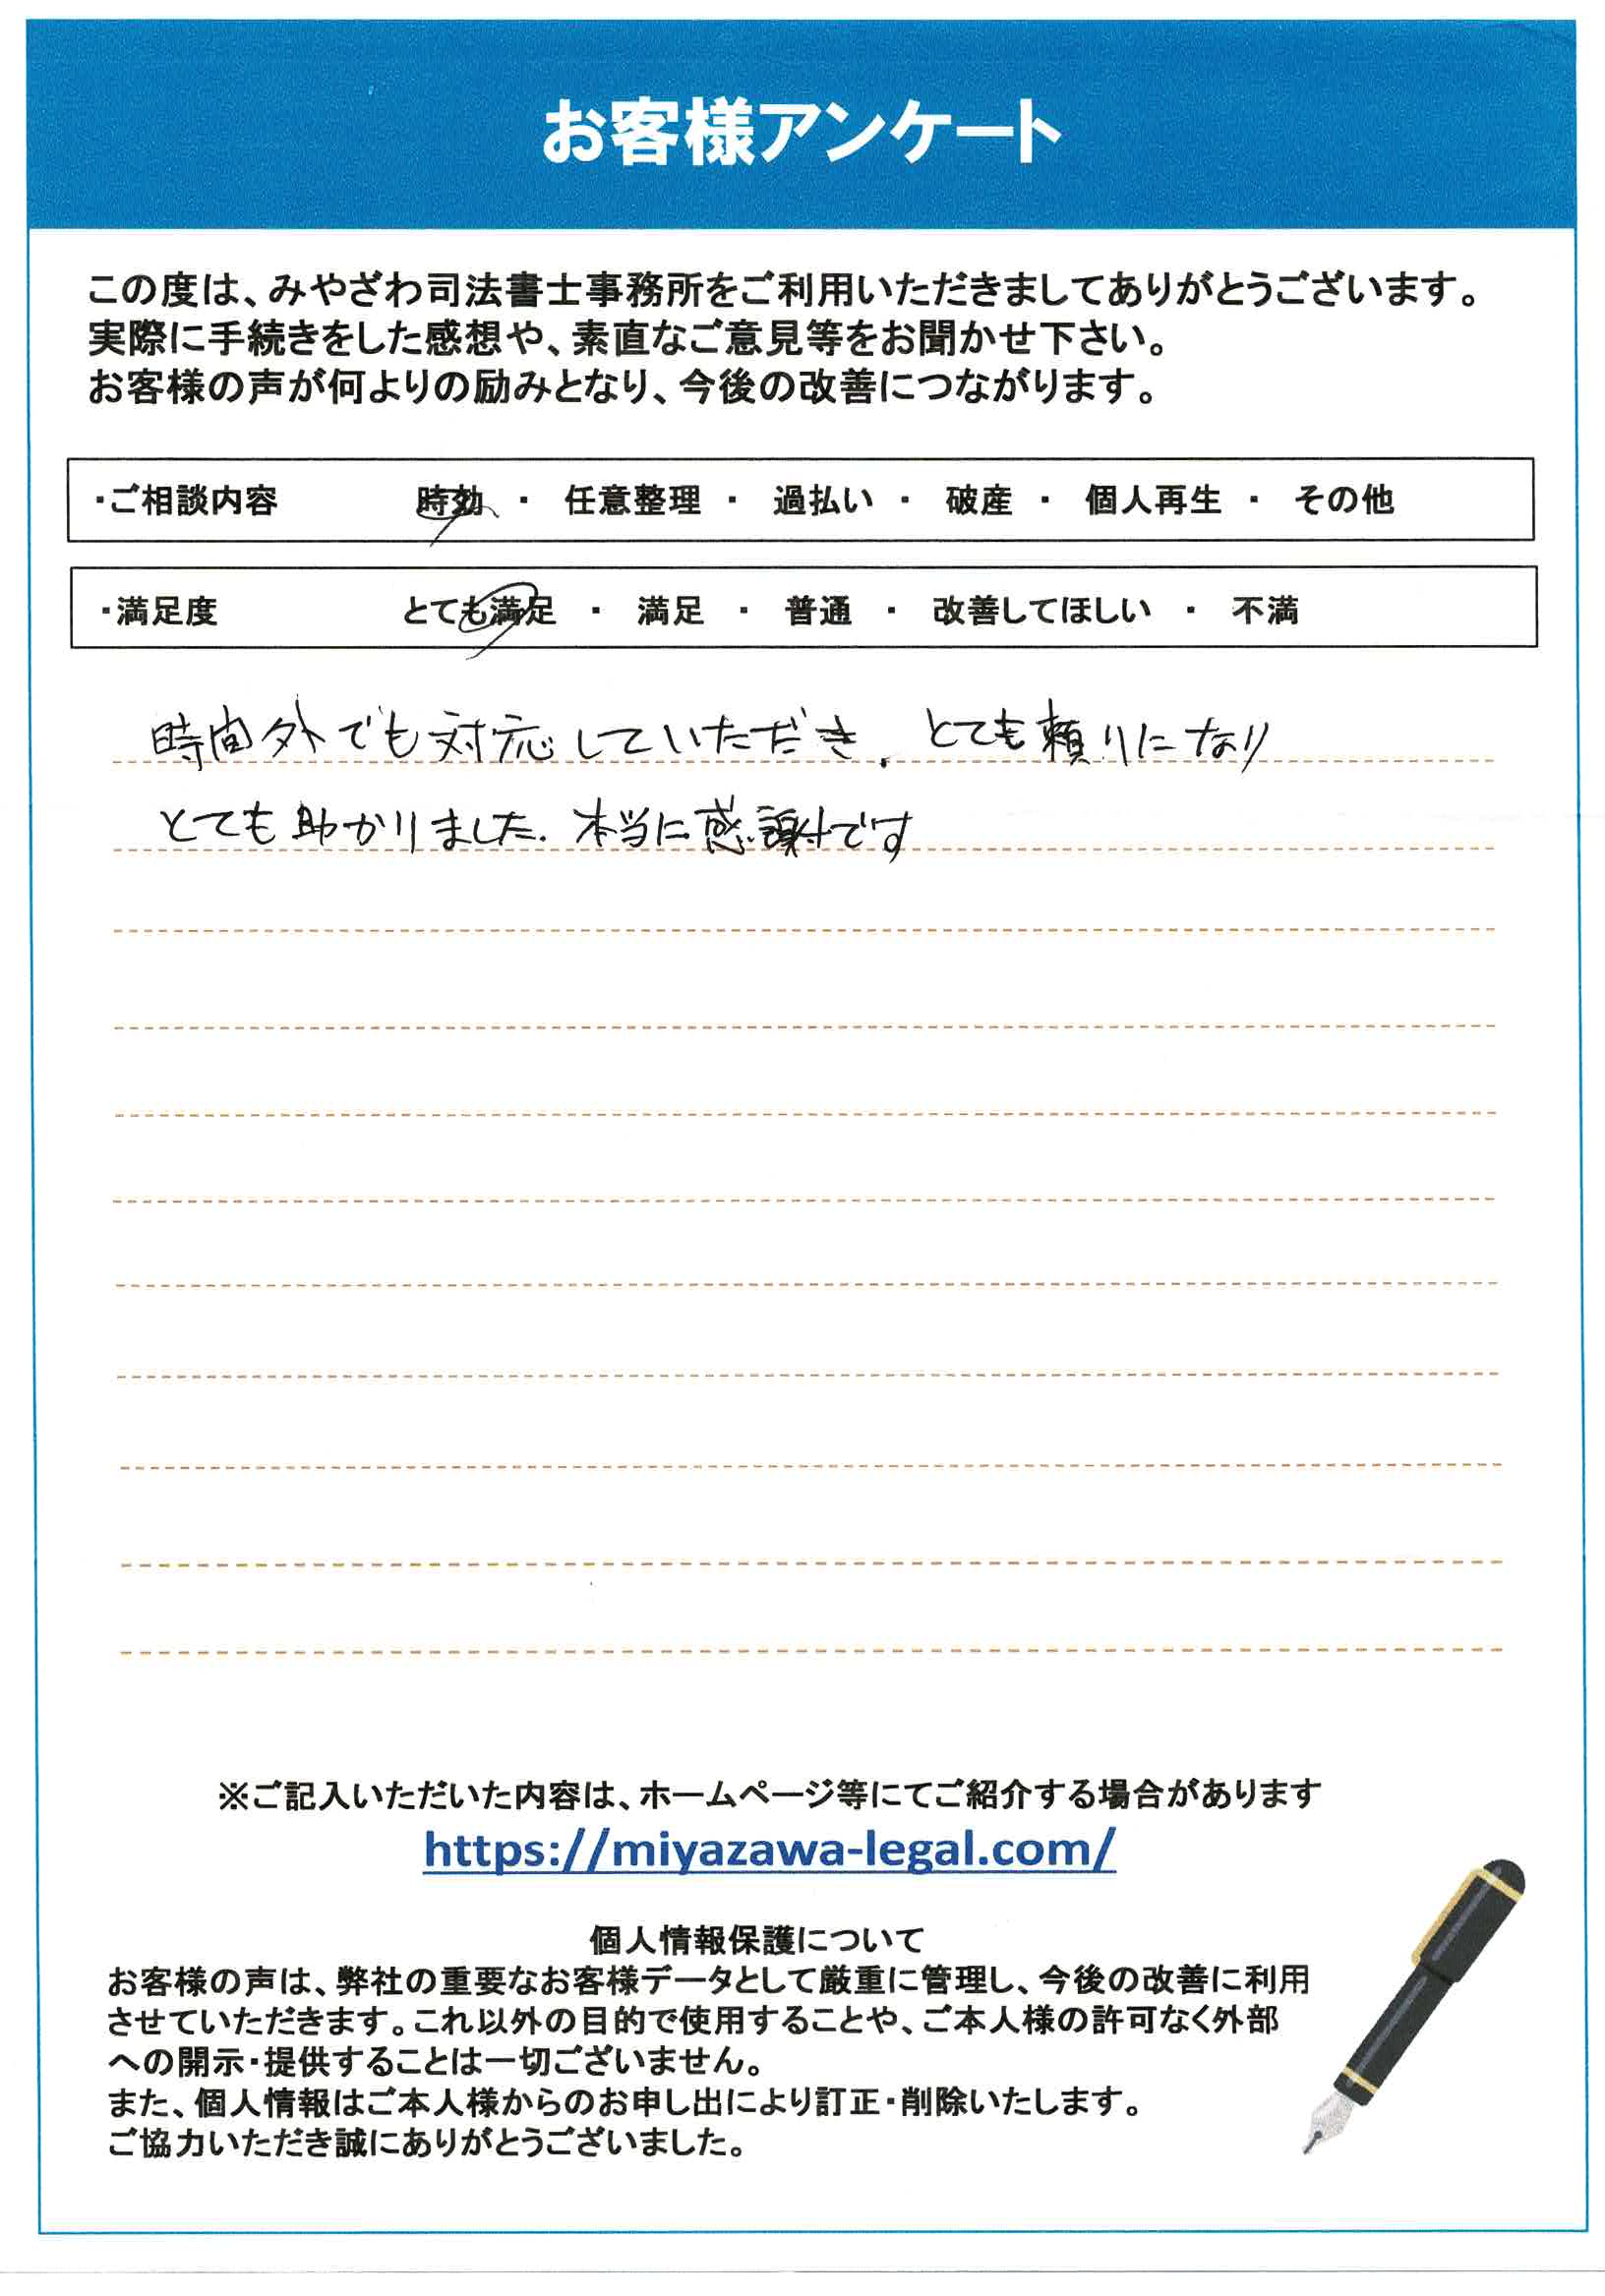 お客様アンケート
この度は、みやざわ司法書士事務所をご利用いただきましてありがとうございます。
実際に手続きをした感想や、素直なご意見等をお聞かせ下さい。
お客様の声が何よりの励みとなり、今後の改善につながります。
・ご相談内容 時効 ・ 任意整理 ・ 過払い ・ 破産 ・ 個人再生 ・ その他
・満足度 とても満足 ・ 満足 ・ 普通 ・ 改善してほしい ・ 不満
時間外でも対応していただき、とても頼りになり
とても助かりました。本当に感謝です
※ご記入いただいた内容は、ホームページ等にてご紹介する場合があります
https://miyazawa-legal.com/
個人情報保護について
お客様の声は、弊社の重要なお客様データとして厳重に管理し、今後の改善に利用
させていただきます。これ以外の目的で使用することや、ご本人様の許可なく外部
への開示・提供することは一切ございません。
また、個人情報はご本人様からのお申し出により訂正・削除いたします。
ご協力いただき誠にありがとうございました。